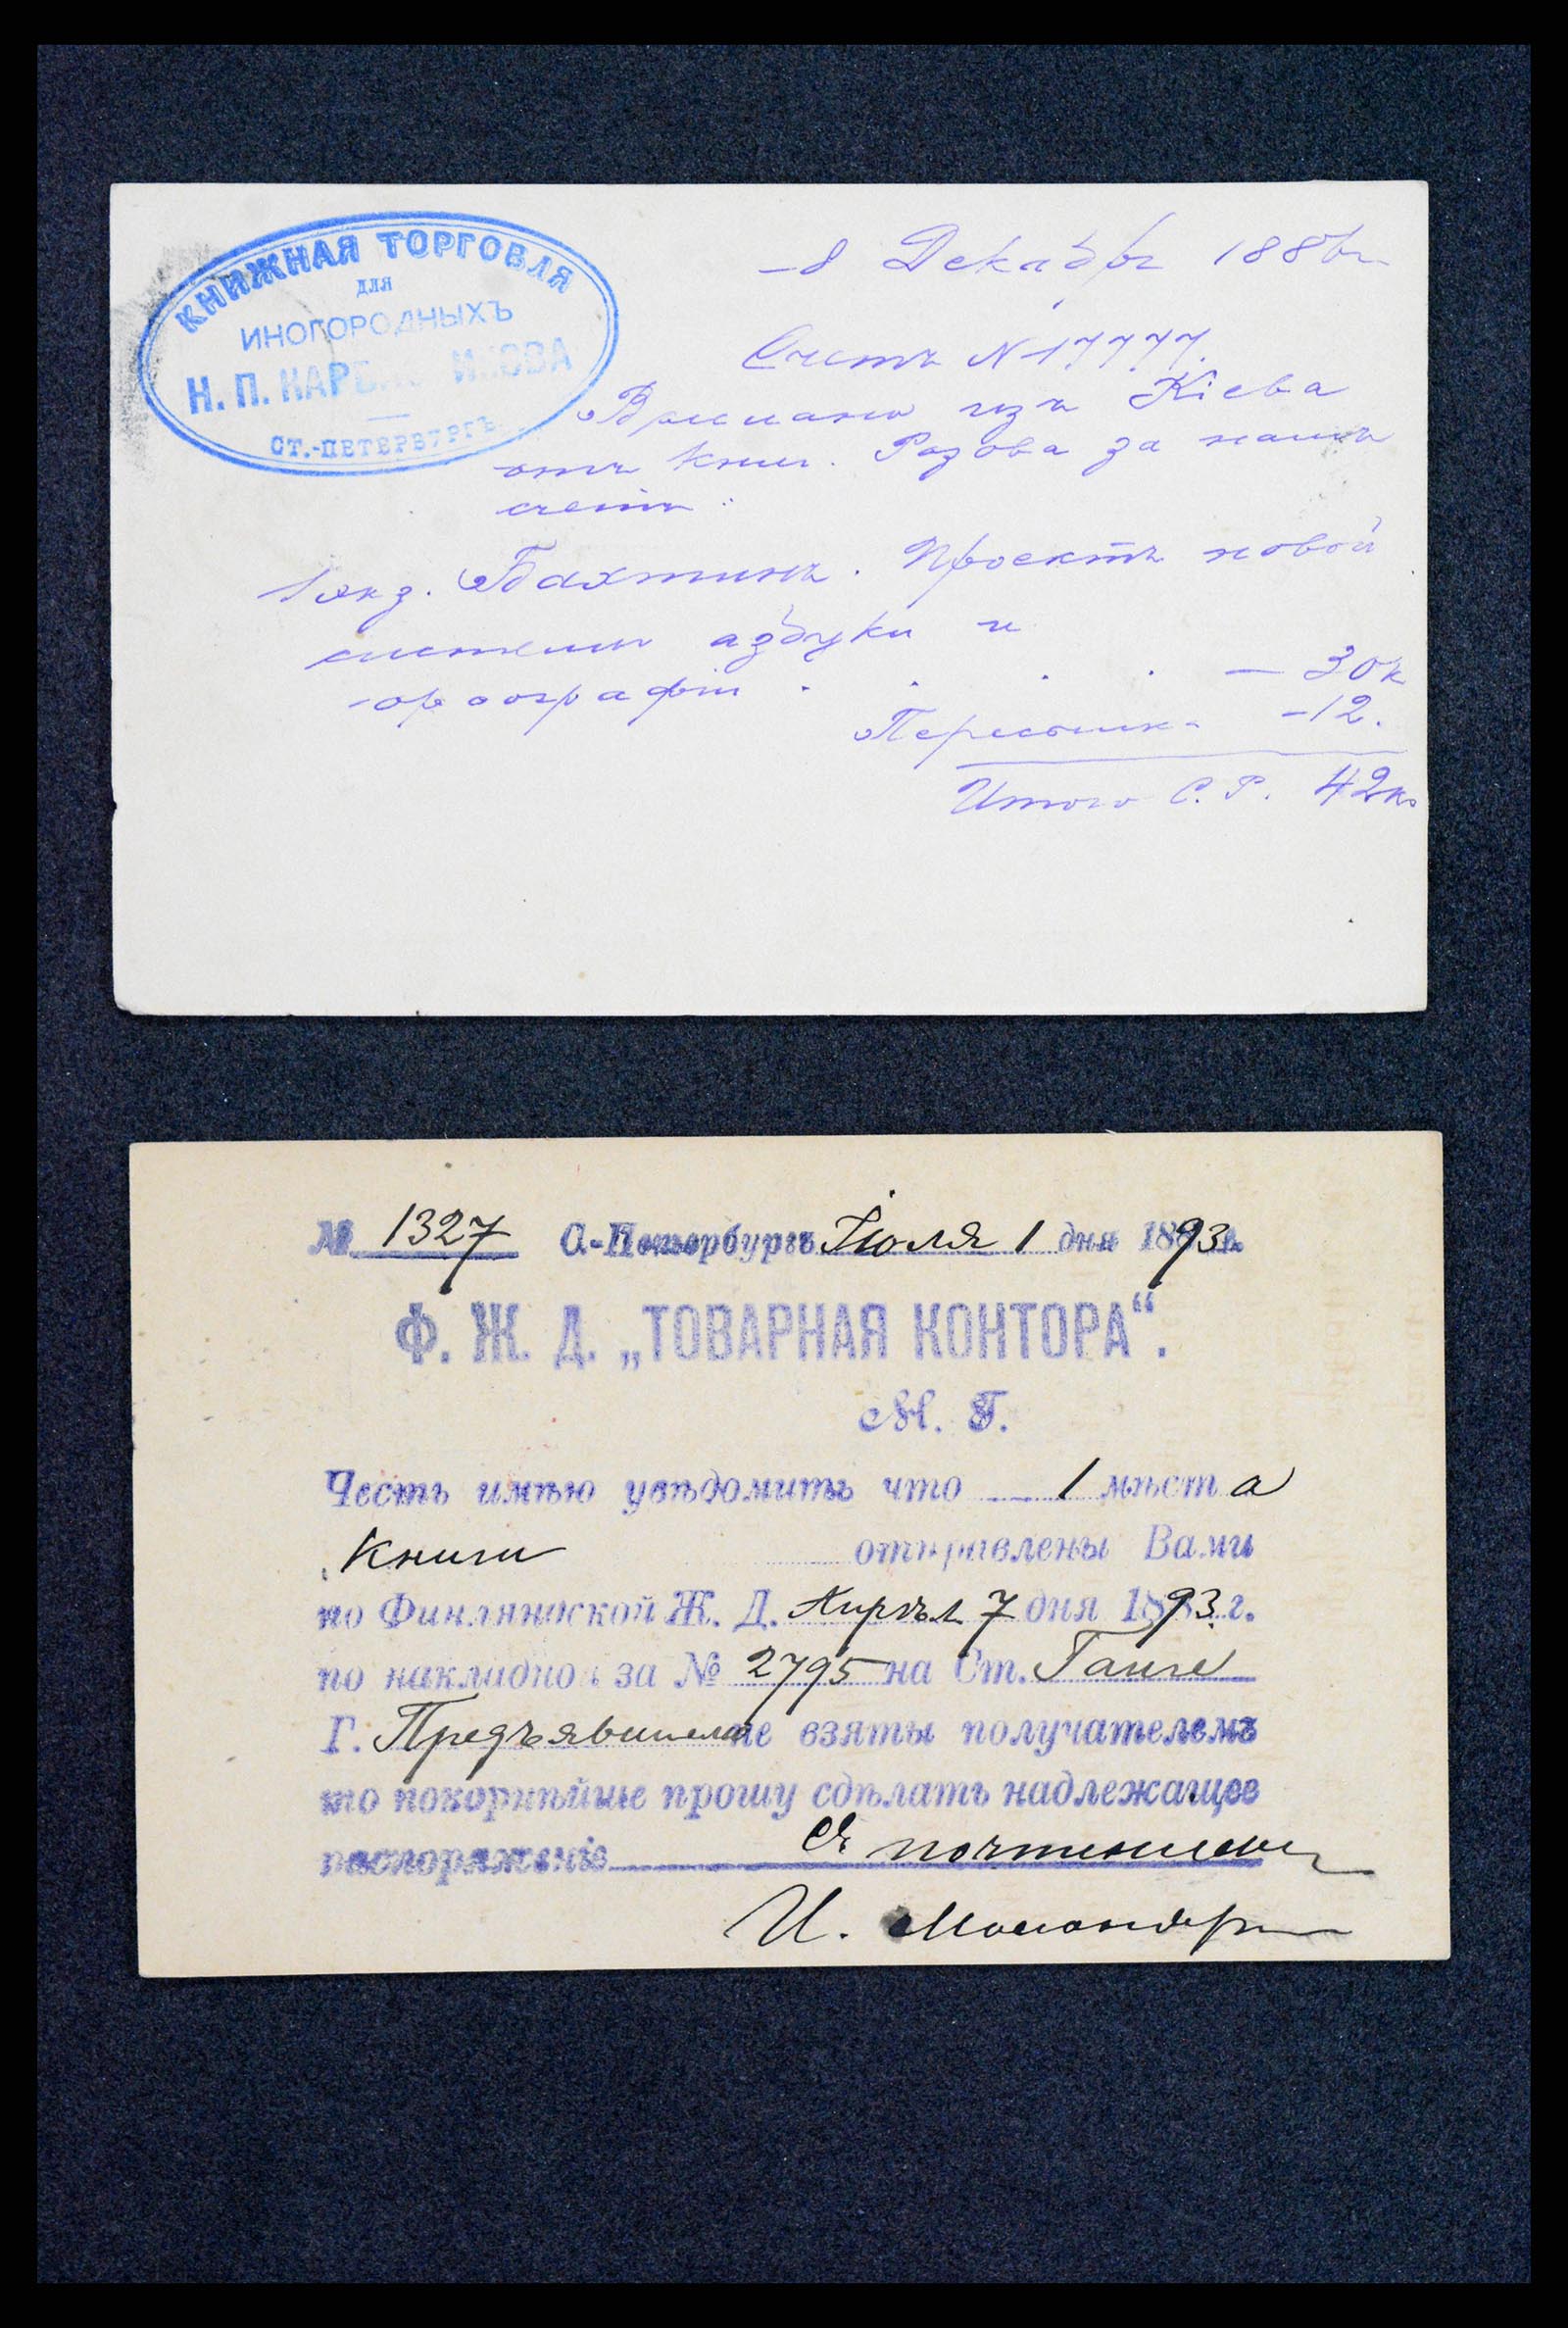 КНИЖНАЯ ТОРГОВЛЯ
для
ИНОГОРОДНЫХЪ
Н. П. КАРБ
СТ.-ПЕТЕРБУРГЪ
8 Декабря 1886 г.
Счетъ N 17777.
изъ Кіева
отъ книг. Розова за нашъ
счетъ:
1 экз. Бахтинъ. Проектъ новой
системы азбуки и
орѳографіи . . . — 30 к
Пересылка - 12.
Итого С. Р. 42 к.
№ 1327 С.-Петербургъ Іюля 1 дня 1893 г.
Ф. Ж. Д. „ТОВАРНАЯ КОНТОРА“.
М. Г.
Честь имѣю увѣдомить что 1 мѣст а
Книги отправлены Вами
по Финляндской Ж. Д. Апрѣл 7 дня 1893 г.
по накладной за № 2795 на Ст. Ганге
Г. Предъявителю не взяты получателемъ
то покорнѣйше прошу сдѣлать надлежащее
распоряженіе Съ почтеніемъ
И.